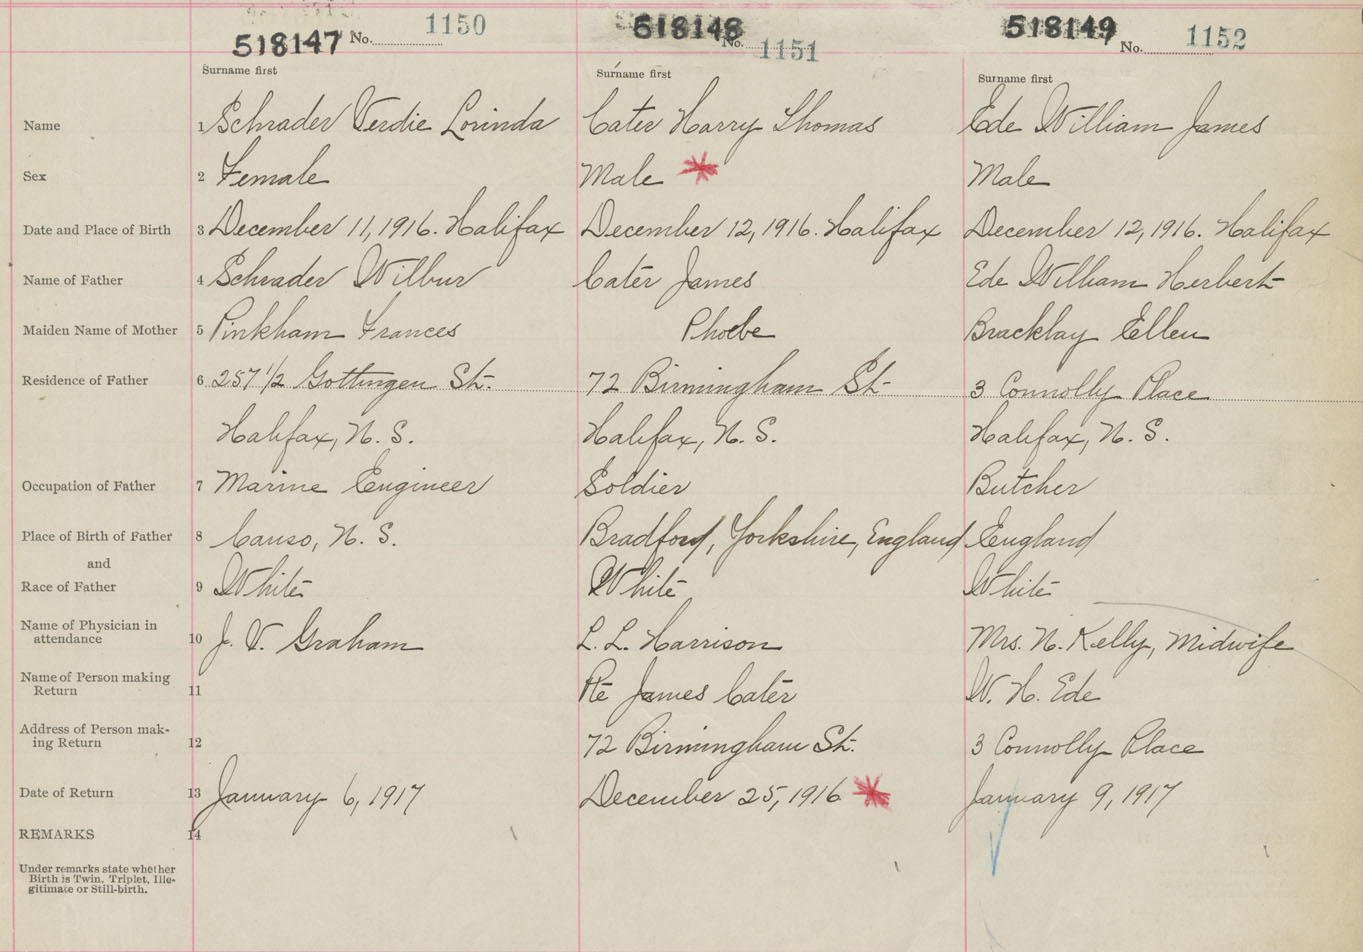 518147 No. 1150 518148 No. 1151 518149 No. 1152
Surname first Surname first Surname first
Name 1 Schrader Verdie Lorinda Cater Harry Thomas Ede William James
Sex 2 Female Male Male
Date and Place of Birth 3 December 11, 1916. Halifax December 12, 1916. Halifax December 12, 1916. Halifax
Name of Father 4 Schrader Wilbur Cater James Ede William Herbert
Maiden Name of Mother 5 Pinkham Frances Phoebe Bracklay Ellen
Residence of Father 6 257 1/2 Gottingen St. 72 Birmingham St. 3 Connolly Place
Halifax, N. S. Halifax, N. S. Halifax, N. S.
Occupation of Father 7 Marine Engineer Soldier Butcher
Place of Birth of Father 8 Canso, N. S. Bradford, Yorkshire, England England
and
Race of Father 9 White White White
Name of Physician in
attendance 10 J. V. Graham L. L. Harrison Mrs. N. Kelly, Midwife
Name of Person making
Return 11 Pte James Cater W. H. Ede
Address of Person mak-
ing Return 12 72 Birmingham St. 3 Connolly Place
Date of Return 13 January 6, 1917 December 25, 1916 January 9, 1917
REMARKS 14
Under remarks state whether
Birth is Twin, Triplet, Ille-
gitimate or Still-birth.